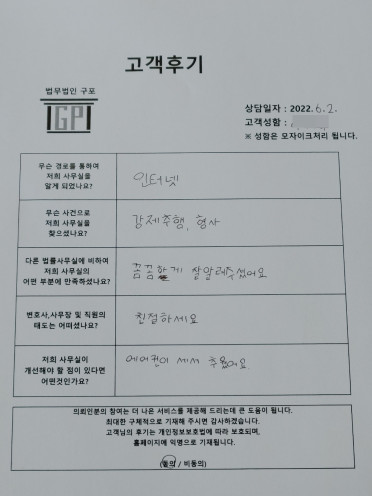 고객후기
법무법인 구포
GP
상담일자 : 2022. 6. 2.
고객성함 :
※ 성함은 모자이크처리 됩니다.
무슨 경로를 통하여
저희 사무실을
알게 되었나요?
인터넷
무슨 사건으로
저희 사무실을
찾으셨나요?
강제추행, 형사
다른 법률사무실에 비하여
저희 사무실의
어떤 부분에 만족하셨나요?
꼼꼼하게 잘알려주셨어요
변호사,사무장 및 직원의
태도는 어떠셨나요?
친절하세요
저희 사무실이
개선해야 할 점이 있다면
어떤것인가요?
에어컨이 세서 추웠어요.
의뢰인분의 참여는 더 나은 서비스를 제공해 드리는데 큰 도움이 됩니다.
최대한 구체적으로 기재해 주시면 감사하겠습니다.
고객님의 후기는 개인정보보호법에 따라 보호되며,
홈페이지에 익명으로 기재됩니다.
(동의 / 비동의)